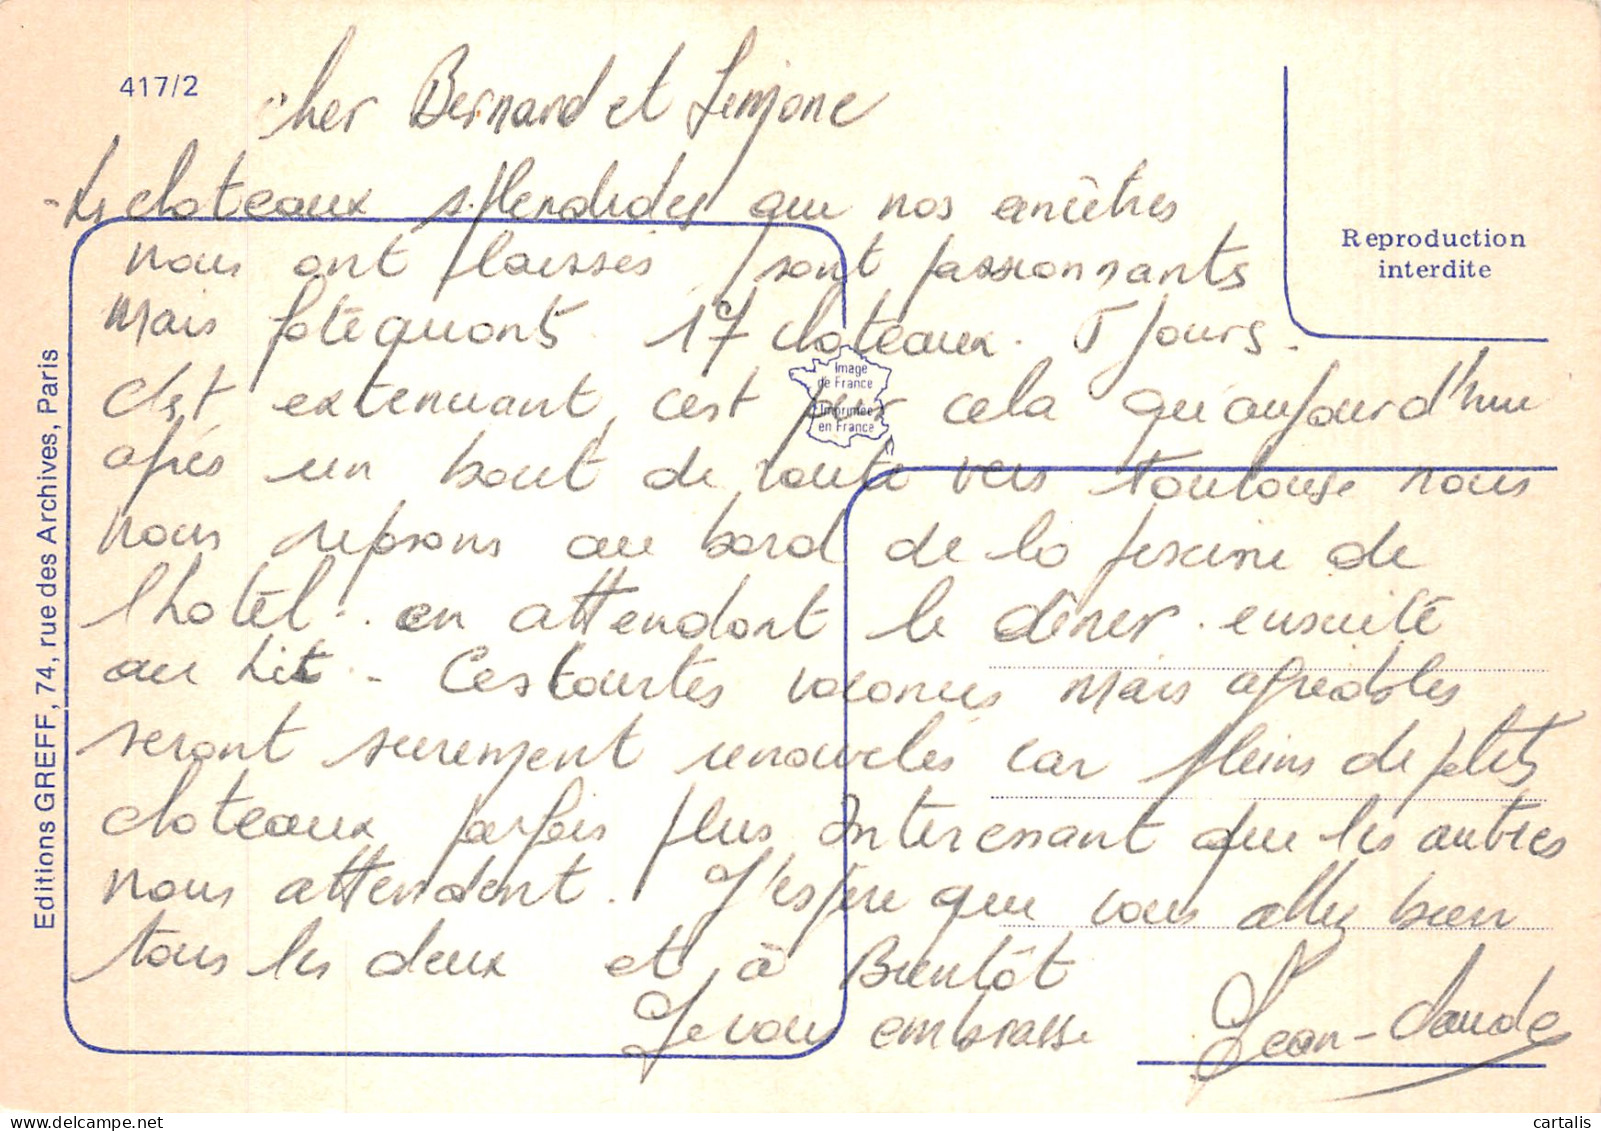 417/2
cher Bernard et Simone
Les chateaux splendides que nos ancètres
nous ont laissés sont passionnants
Mais fatéquants. 17 chateaux. 5 jours.
c'est extenuant, c'est pour cela qu'aujourd'hui
après un bout de route vers Toulouse nous
nous reposons au bord de la piscine de
l'hotel. en attendant le diner. ensuite
au Lit - Ces courtes vacances mais agréables
seront surement renouvelés car pleins de petits
chateaux parfois plus Interessant que les autres
nous attendent. J'espère que vous allez bien
tous les deux et à Bientôt
Je vous embrasse Jean-Claude
Reproduction
interdite
Image
de France
Imprimée
en France
Editions GREFF, 74, rue des Archives, Paris
cartalis